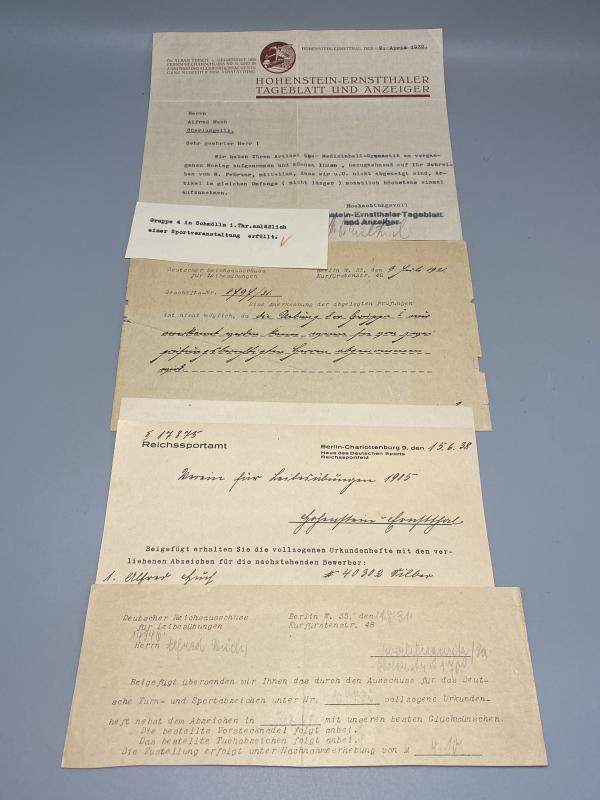 HOHENSTEIN-ERNSTTHAL, DEN 9. April 1932.
HOHENSTEIN-ERNSTTHALER
TAGEBLATT UND ANZEIGER
Herrn
Alfred
Oberlungwitz.
Sehr geehrter Herr !
Wir haben Ihren Artikel über Medizinball-Gymnastik am vergan-
genen Montag aufgenommen und können Ihnen, bezugnehmend auf Ihr Schrei-
ben vom 8. Februar, mitteilen, dass wir u.U. nicht abgeneigt sind, Ar-
tikel in gleichem Umfange ( nicht länger ) monatlich höchstens einmal
aufzunehmen.
Hochachtungsvoll
stein-Ernstthaler Tageblatt
und Anzeiger.
Gruppe 4 in Schmölln i.Thr.anläßlich
einer Sportveranstaltung erfüllt.
Deutscher Reichsausschuss
für Leibesübungen
Berlin W. 35, den 9. Juli 1931
Kurfürstenstr. 48
Geschäfts-Nr. 8797/31.
Eine Anerkennung der abgelegten Prüfungen
ist nicht möglich, da die Uebung der Gruppe
anerkannt werden kann, wenn sie von zwei
prüfungsberechtigten Herren abgenommen
wird.
§ 17875
Reichssportamt
Berlin-Charlottenburg 9, den 15.6.38
Haus des Deutschen Sports
Reichssportfeld
Verein für Leibesübungen 1905
Hohenstein-Ernstthal
Beigefügt erhalten Sie die vollzogenen Urkundenhefte mit den ver-
liehenen Abzeichen für die nachstehenden Bewerber:
1. Alfred # 40302 Silber
Deutscher Reichsausschuss
für Leibesübungen
Berlin W. 35, den 11.8.31.
Kurfürstenstr. 48
Herrn Alfred
Beigefügt übersenden wir Ihnen das durch den Ausschuss für das Deut-
sche Turn- und Sportabzeichen unter Nr. vollzogene Urkunden-
heft nebst dem Abzeichen in mit unseren besten Glückwünschen.
Die bestellte Vorstecknadel folgt anbei.
Das bestellte Tuchabzeichen folgt anbei.
Die Zustellung erfolgt unter Nachnahmeerhebung von